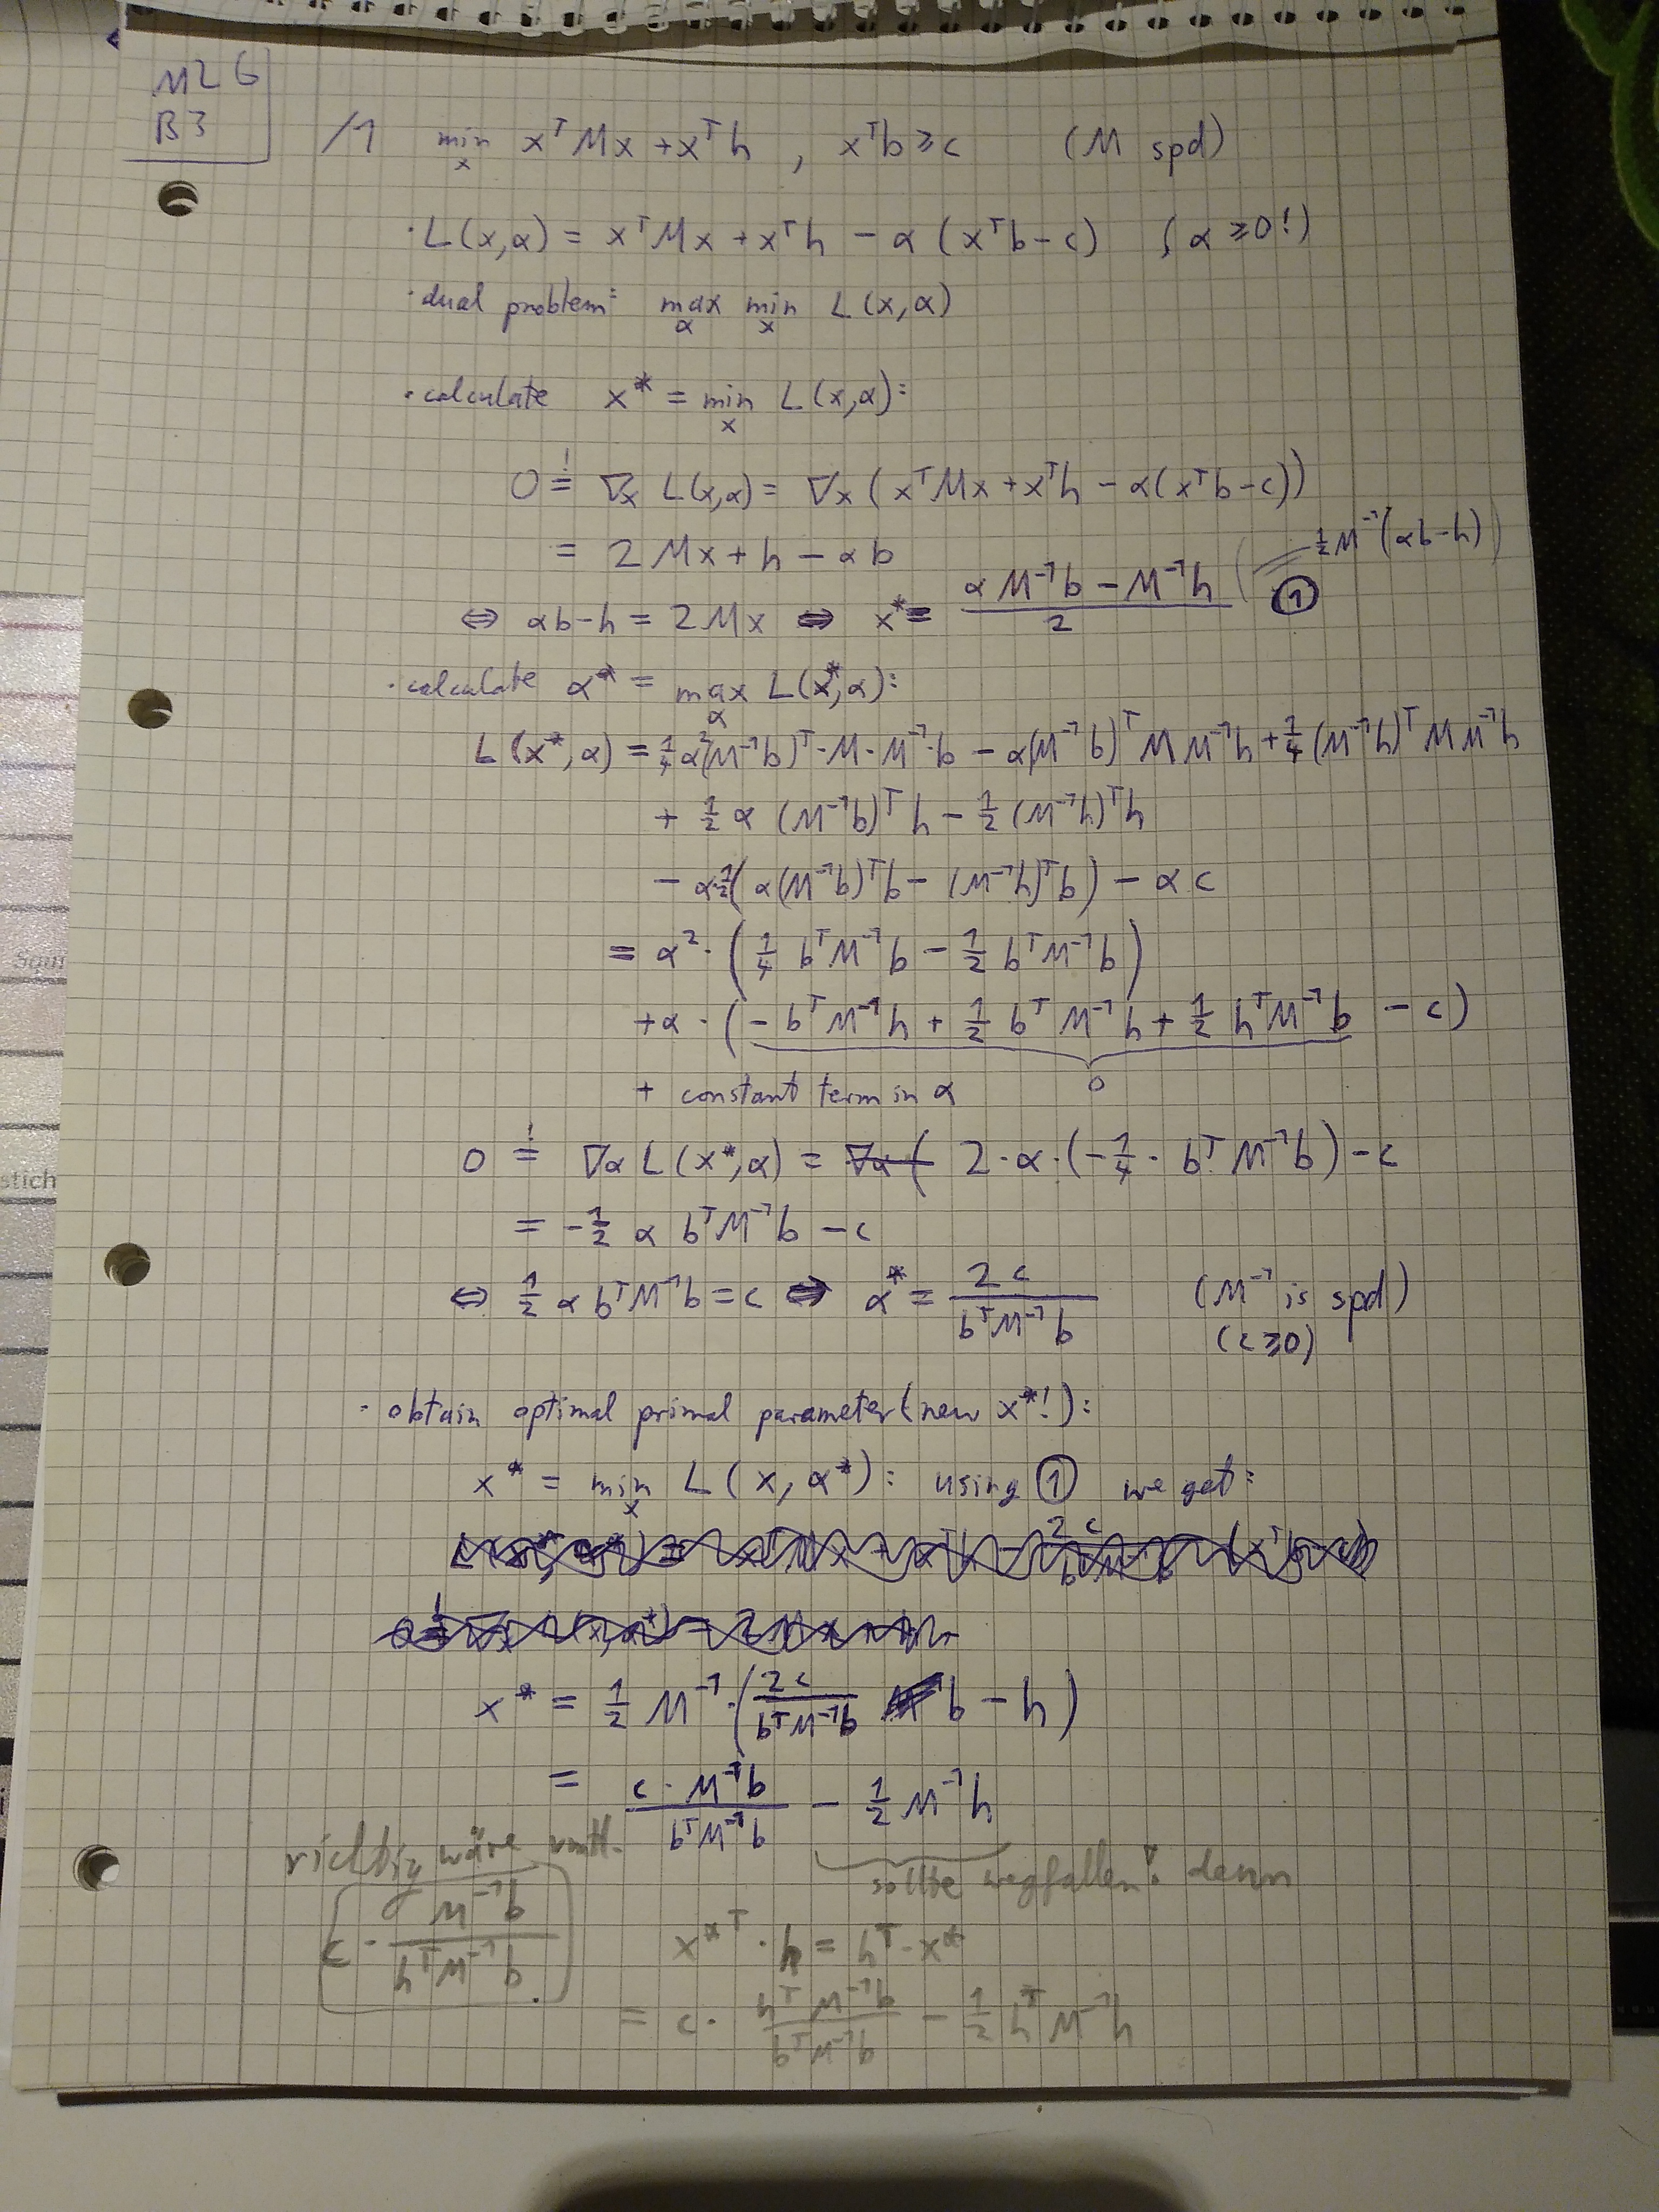 M26
B3
/1 min_x xᵀMx + xᵀh , xᵀb ≥ c (M spd)
· L(x,α) = xᵀMx + xᵀh − α (xᵀb − c) , (α ≥ 0!)
· dual problem: max_α min_x L(x,α)
· calculate x* = min_x L(x,α):
0 =! ∇x L(x,α) = ∇x (xᵀMx + xᵀh − α(xᵀb − c))
= 2Mx + h − αb
⇔ αb − h = 2Mx ⇔ x* = (αM⁻¹b − M⁻¹h)/2 (= ½M⁻¹(αb − h)) ①
· calculate α* = max_α L(x*,α):
L(x*,α) = ¼α²(M⁻¹b)ᵀ·M·M⁻¹·b − α(M⁻¹b)ᵀMM⁻¹h + ¼(M⁻¹h)ᵀMM⁻¹h
+ ½ α (M⁻¹b)ᵀh − ½ (M⁻¹h)ᵀh
− α·½(α(M⁻¹b)ᵀb − (M⁻¹h)ᵀb) − αc
= α² · (¼ bᵀM⁻¹b − ½ bᵀM⁻¹b)
+α · (− bᵀM⁻¹h + ½ bᵀM⁻¹h + ½ hᵀM⁻¹b − c)
0
+ constant term in α
0 =! ∇α L(x*,α) = 2·α·(−¼ · bᵀM⁻¹b) − c
= −½ α bᵀM⁻¹b − c
⇔ ½ α bᵀM⁻¹b = c ⇔ α* = 2c/(bᵀM⁻¹b) (M⁻¹ is spd)
(c ≥ 0)
· obtain optimal primal parameter (new x*!):
x* = min_x L(x, α*): using ① we get:
x* = ½ M⁻¹·(2c/(bᵀM⁻¹b) b − h)
= c·M⁻¹b/(bᵀM⁻¹b) − ½ M⁻¹h
richtig wäre vmtl. sollte wegfallen! denn
c · M⁻¹b/(hᵀM⁻¹b)
x*ᵀ·h = hᵀ·x*
= c · hᵀM⁻¹b/(bᵀM⁻¹b) − ½ hᵀM⁻¹h
stich